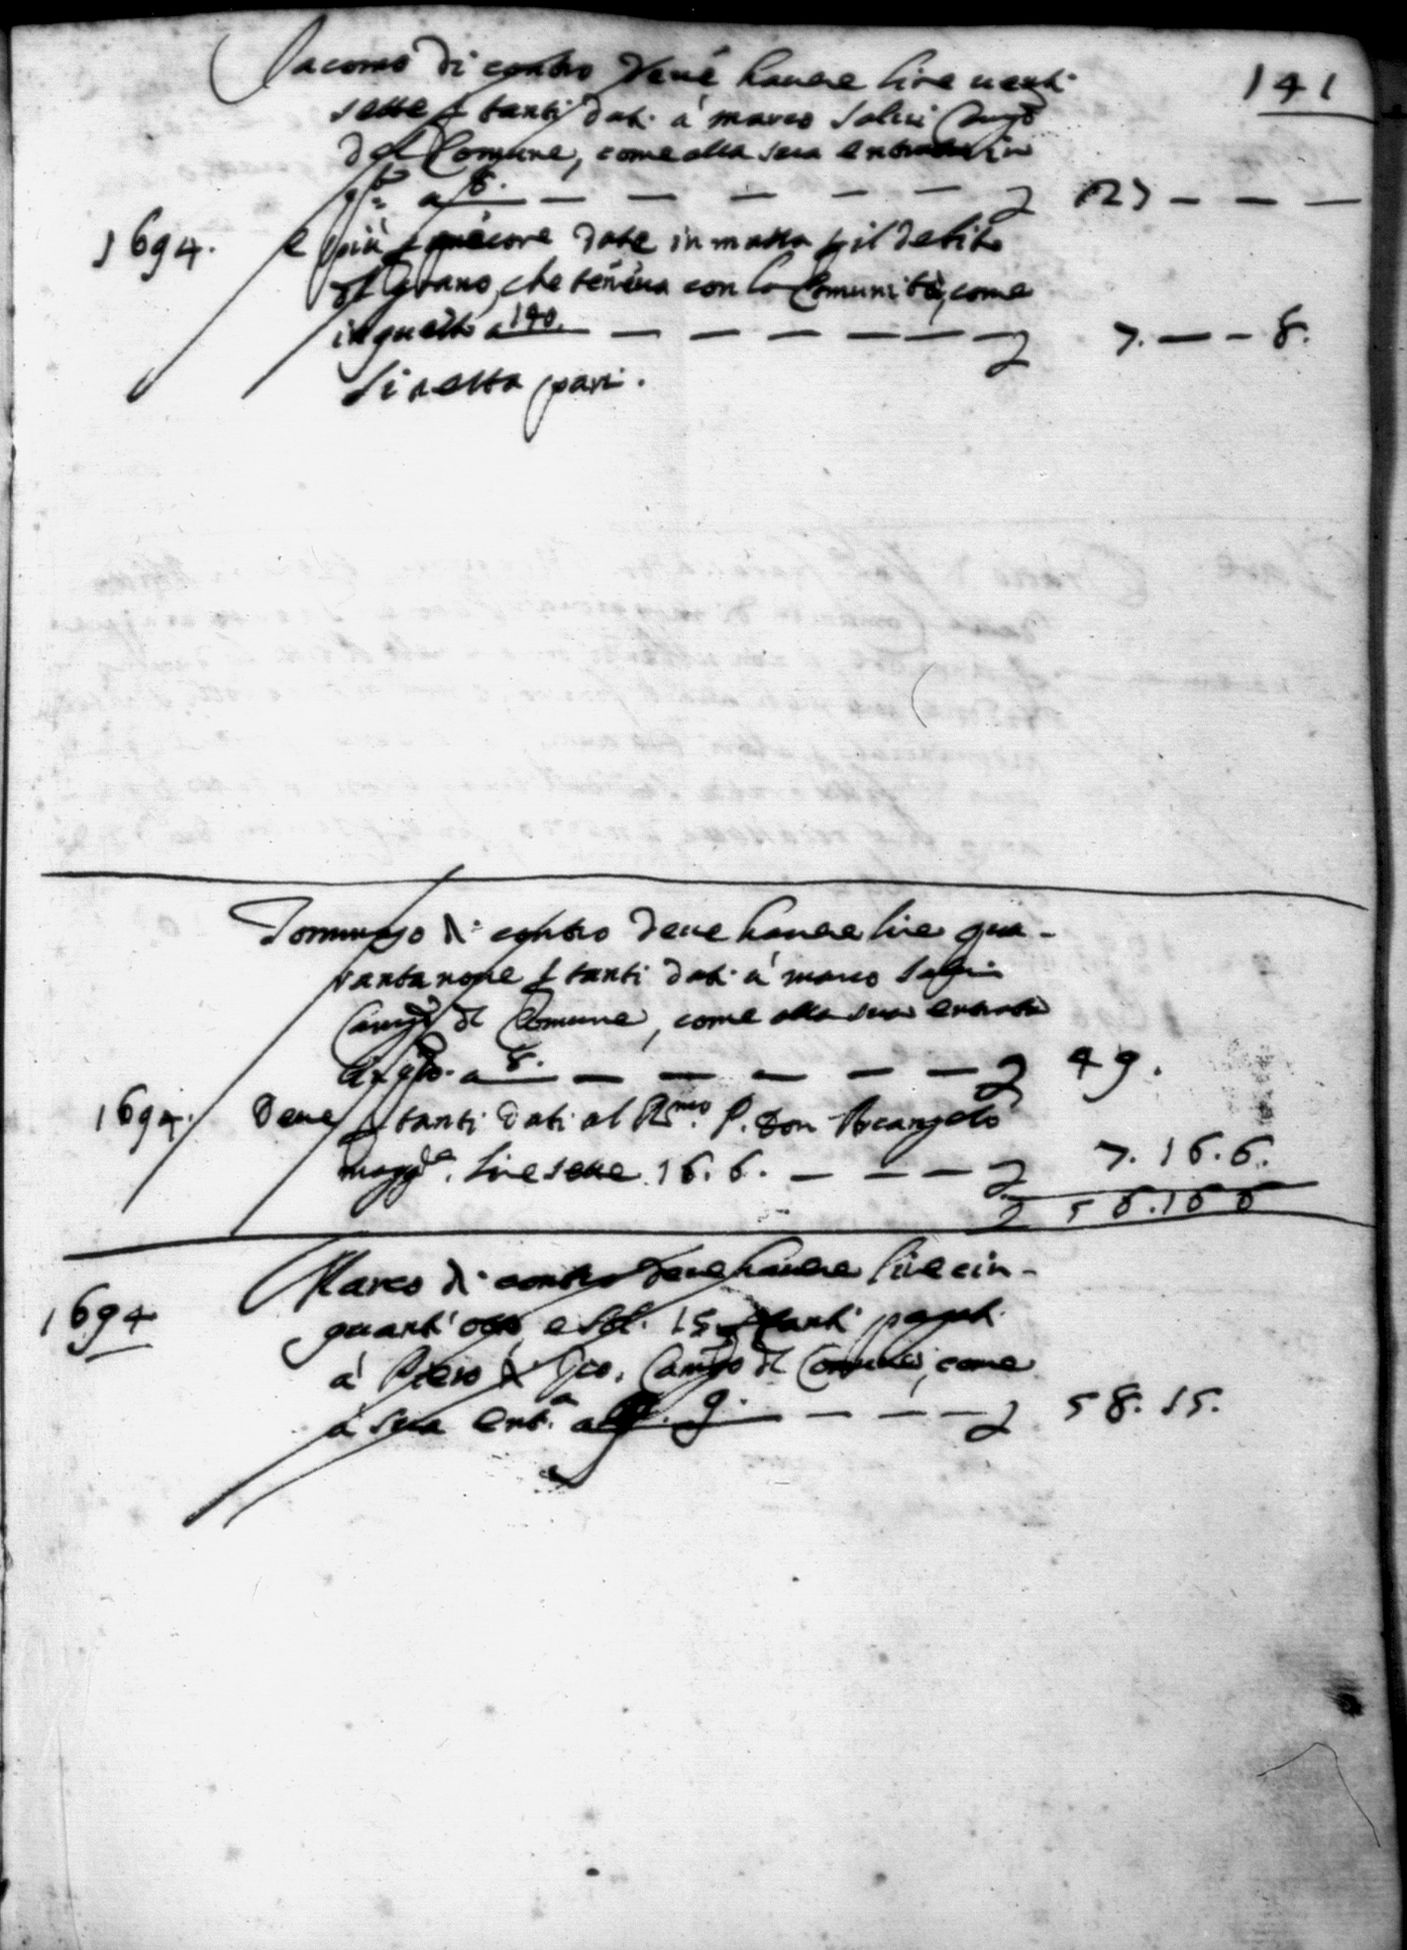 141
Iacomo di contro deue hauere lire uenti
sette p tanti dati à marco Salini Camgo
del Comune, come alla sua entrata in
qto a 8. — — — — — — 27 — — —
1694. e più p pecore date in matta p il debito
del grano, che teneua con la Comunità, come
in questo a 140. — — — — — — 7. — — 8.
Si resta pari.
Domenigo di contro deue hauere lire qua-
ranta noue p tanti dati à marco Salini
Camgo di Comune, come alla sua entrata
in qto. a 8. — — — — — 49.
1694. Deue p tanti dati al Rmo. P. Don Arcangelo
maggra. lire sette 16. 6. — — — 7. 16. 6.
56. 16 6
1694 Marco di contro deue hauere lire cin-
quant'otto e sol. 15 p tanti pagati
à Piero Camgo di Comune, come
à sua enta. a 9. — — — 58. 15.